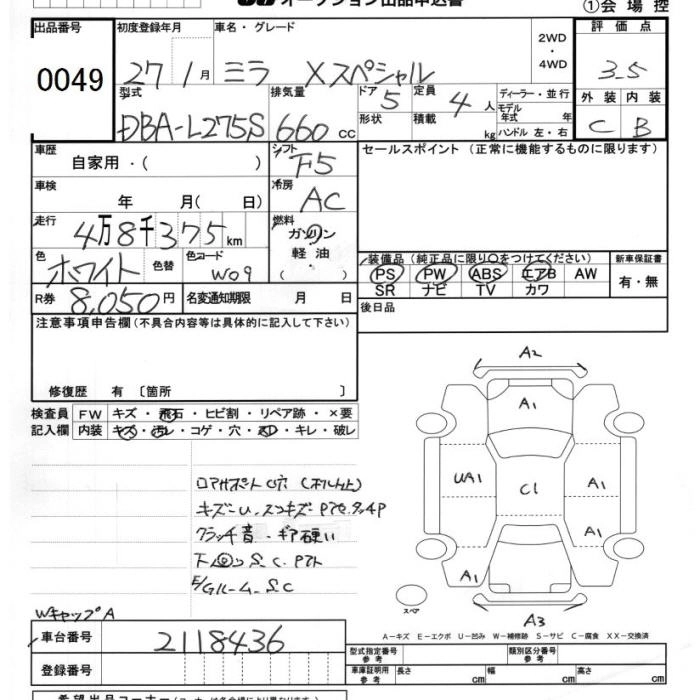 オークション出品申込書
①会場控
出品番号 0049
初度登録年月 27 1月
車名・グレード ミラ Xスペシャル
2WD・4WD
評価点 3.5
外装 C 内装 B
型式 DBA-L275S
排気量 660 cc
ドア 5 形状
定員 4人 積載 kg
ディーラー・並行
モデル年式 年式
ハンドル 左・右
車歴 自家用・( )
シフト F5
セールスポイント (正常に機能するものに限ります)
車検 年 月( 日)
冷房 AC
走行 4万8千375km
燃料 ガソリン 軽油 ・( )
色 ホワイト 色替 色コード W09
装備品 (純正品に限り○をつけてください)
PS PW ABS エアB AW
SR ナビ TV カワ
新車保証書 有・無
R券 8,050円 名変通知期限 月 日
後日品
注意事項申告欄 (不具合内容等は具体的に記入して下さい)
修復歴 有 〔箇所 〕
検査員 FW キズ・飛石・ヒビ割・リペア跡・×要
記入欄 内装 キズ・汚レ・コゲ・穴・ヌロ・キレ・破レ
キズ-U、スコキズ-P
クラッチ音・ギア硬い
S.C
E/Gルーム S.C
WキャップA
A2
A1
UA1 C1 A1
A1
A1
スペア
A3
A-キズ E-エクボ U-凹み W-補修跡 S-サビ C-腐食 XX-交換済
車台番号 2118436
登録番号
型式指定番号 参考 類別区分番号 参考
車庫証明用 参考 長さ cm 幅 cm 高さ cm
希望出品コーナー